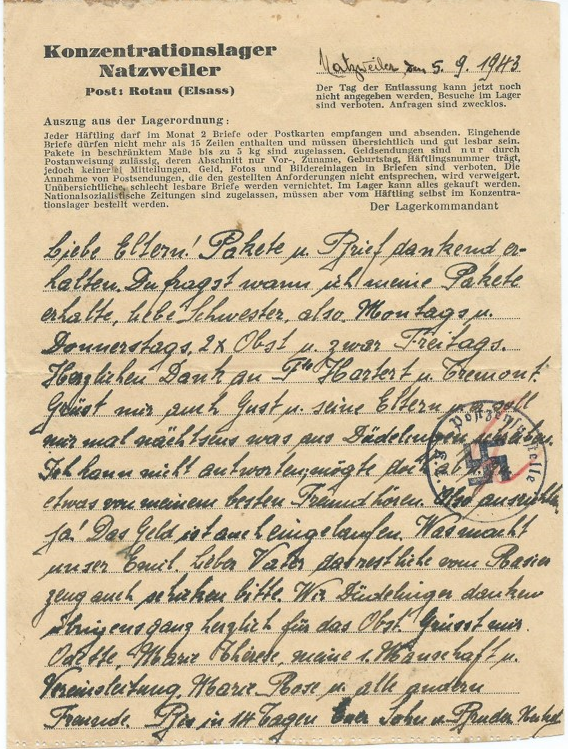 Konzentrationslager
Natzweiler
Post: Rotau (Elsass)
Natzweiler den 5. 9. 1943
Der Tag der Entlassung kann jetzt noch
nicht angegeben werden. Besuche im Lager
sind verboten. Anfragen sind zwecklos.
Auszug aus der Lagerordnung:
Jeder Häftling darf im Monat 2 Briefe oder Postkarten empfangen und absenden. Eingehende
Briefe dürfen nicht mehr als 15 Zeilen enthalten und müssen übersichtlich und gut lesbar sein.
Pakete in beschränktem Maße bis zu 5 kg sind zugelassen. Geldsendungen sind nur durch
Postanweisung zulässig, deren Abschnitt nur Vor-, Zuname, Geburtstag, Häftlingsnummer trägt,
jedoch keinerlei Mitteilungen. Geld, Fotos und Bildereinlagen in Briefen sind verboten. Die
Annahme von Postsendungen, die den gestellten Anforderungen nicht entsprechen, wird verweigert.
Unübersichtliche, schlecht lesbare Briefe werden vernichtet. Im Lager kann alles gekauft werden.
Nationalsozialistische Zeitungen sind zugelassen, müssen aber vom Häftling selbst im Konzentra-
tionslager bestellt werden.
Der Lagerkommandant
Liebe Eltern! Pakete u. Brief dankend er-
halten. Du fragst wann ich meine Pakete
erhalte, liebe Schwester, also Montags u.
Donnerstags, 2x Obst u. zwar Freitags.
Herzlichen Dank an Fr Hartert u. Tremont.
Grüst mir auch Gust u. seine Eltern u. soll
mir mal nächstens was aus Düdelingen
Ich kann nicht antworten, mögte
etwas von meinem besten Freund hören. Also ausrichten
ja! Das Geld ist auch eingelaufen. Was macht
unser Emil. Lieber Vater das restliche vom Rasier
zeug auch schicken bitte. Wir Düdelinger danken
übrigens ganz herzlich für das Obst. Grüsst mir
Odette, Marie Thérèse, meine 1. Manschaft u.
Vereinsleitung, Marie-Rose u. alle andern
Freunde. Bis in 14 Tagen Euer Sohn u. Bruder
Postzensurstelle